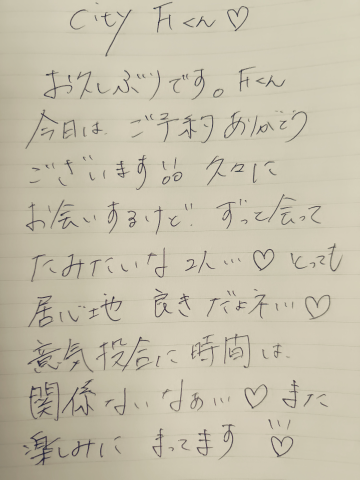 City Fくん♡
お久しぶりです。Fくん
今日は ご予約 ありがとう
ございます!! 久々に
お会いするけど、ずっと会って
たみたいな 2人…♡ とっても
居心地 良き だよネ…♡
意気投合に 時間は、
関係ないなぁ…♡ また
楽しみに まってます ♡